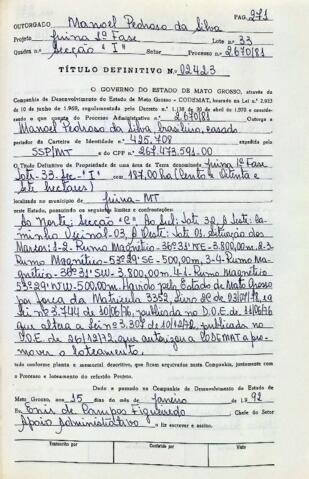 PAG. 271
OUTORGADO Manoel Pedroso da Silva
Projeto Juina 1ª Fase Lote n.º 33
Quadra n.º Secção "I" Setor Processo n.º 2.670/81
TÍTULO DEFINITIVO N.º 02423
O GOVERNO DO ESTADO DE MATO GROSSO, através da
Companhia de Desenvolvimento do Estado de Mato Grosso - CODEMAT, baseado na Lei n.º 2.923
10 de junho de 1969, regulamentada pelo Decreto n.º 1.138 de 30 de abril de 1970 e considerando-
se que consta do Processo Administrativo n.º 2.670/81 Outorga a
Manoel Pedroso da Silva, brasileiro, casado
portador da Carteira de Identidade n.º 425.708 expedida pela
SSP/MT e do CPF n.º 267.473.591-00
O Título Definitivo de Propriedade de uma área de Terra denominada Juina 1ª Fase
Lote-33-Sec-"I" com 187,00 ha (Cento e Oitenta e
Sete hectares)
localizado no município de Juina-MT
neste Estado, possuindo os seguintes limites e confrontações:
Ao Norte: Secção "C" Ao Sul: Lote 32, A Leste: Ca-
minho Vicinal-03, A Oeste: Lote 01. Situação dos
Marcos: 1-2- Rumo Magnético-36º31'NE-3.800,00m, 2-3-
Rumo Magnético-53º29'SE-500,00m, 3-4 Rumo Ma-
gnético-36º31'SW-3.800,00m, 4.1- Rumo Magnético
53º29'NW-500,00m. Havido pelo Estado de Mato Grosso
por força da Matrícula 3352, Livro 2º de 03/07/78,
Lei nº 3.744 de 10/06/76, publicado no D.O.E. de 11/06/76
que altera a Lei nº 3.307 de 10/12/72, publicada no
D.O.E. de 26/12/72, que autorizou a CODEMAT a pro-
mover o loteamento.
tudo conforme planta e memorial descritivo, que ficam arquivados nesta Companhia, juntamente com
o Processo e loteamento do referido Projeto.
Dado e passado na Companhia de Desenvolvimento do Estado de
Mato Grosso, aos 15 dias do mês de Janeiro de 1992
Eu, Enir de Campos Figueiredo Chefe do Setor
Apoio Administrativo o fiz escrever e assino.
Transcrito por Conferido por Visto